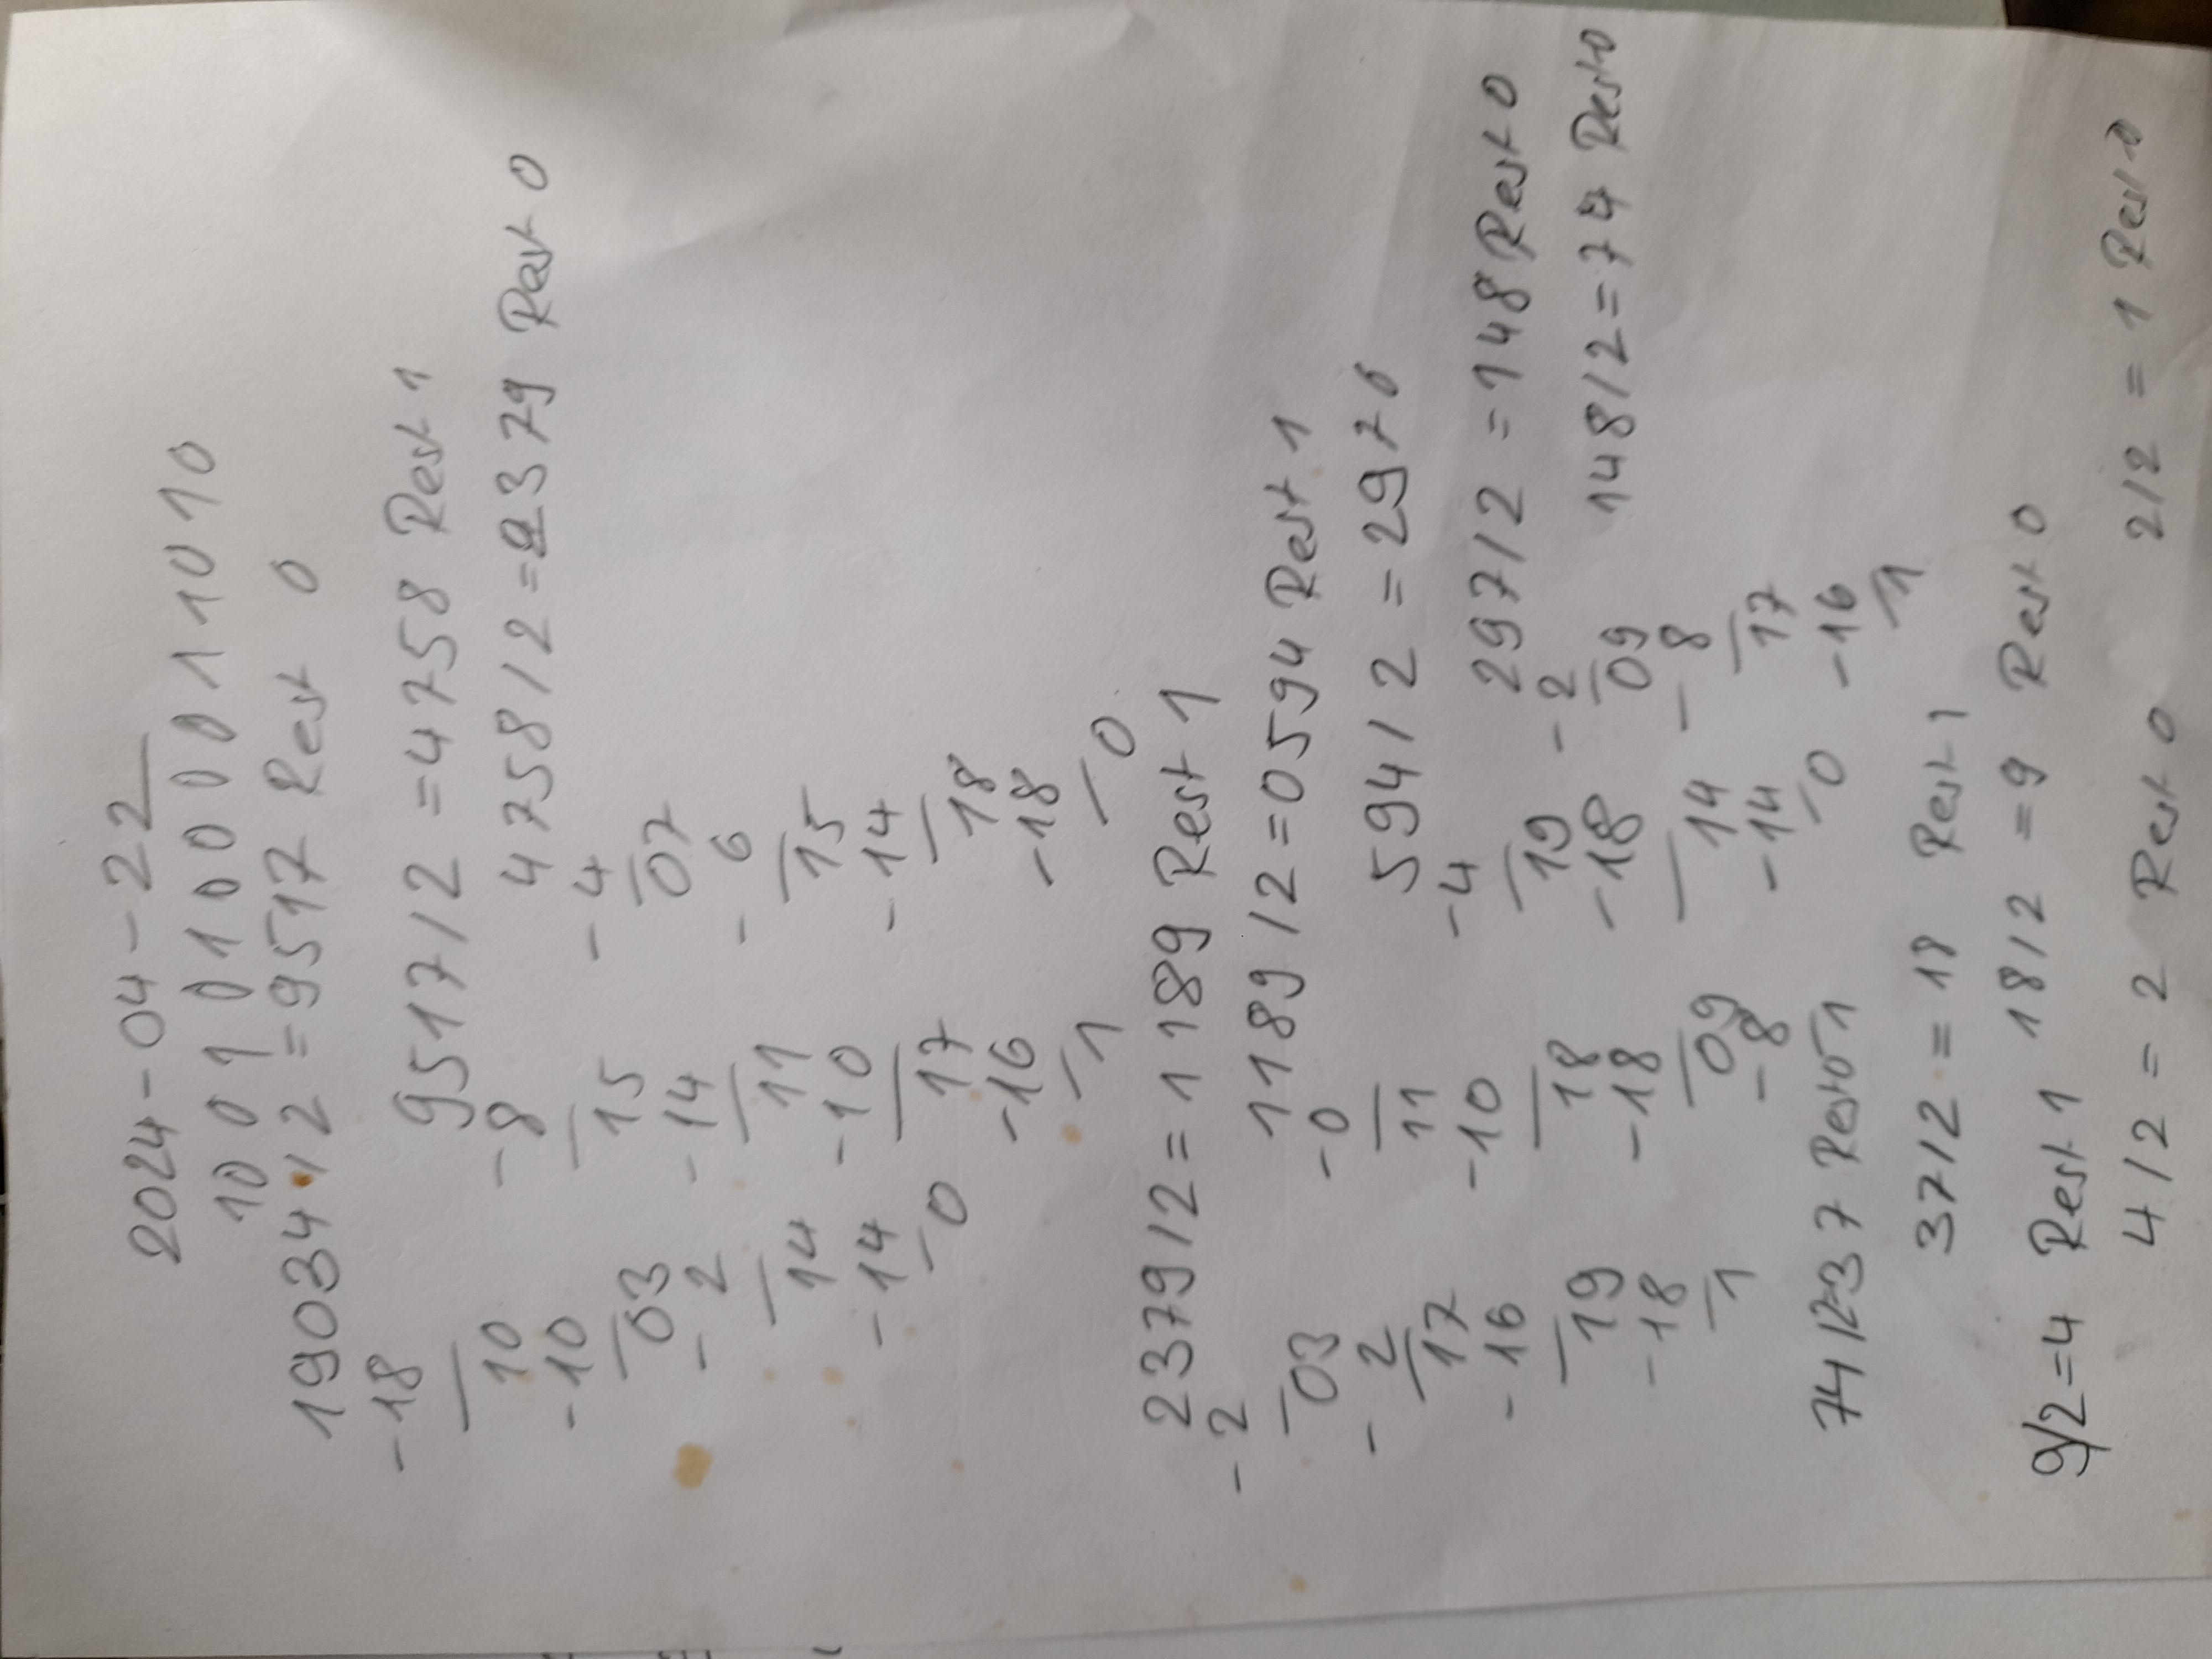 2024-04-22
100101000011010
19034/2 = 9517 Rest 0
-18
10
-10
03
- 2
14
-14
0
9517/2 = 4758 Rest 1
-8
15
-14
11
-10
17
-16
1
4758/2 = 2379 Rest 0
-4
07
- 6
15
-14
18
-18
0
2379/2 = 1189 Rest 1
-2
03
- 2
17
-16
19
-18
1
1189/2 = 0594 Rest 1
-0
11
-10
18
-18
09
-8
1
594/2 = 297
-4
19
-18
14
-14
0
297/2 = 148 Rest 0
-2
09
- 8
17
-16
1
148/2 = 74 Rest 0
74/2=37 Rest 0
37/2 = 18 Rest 1
18/2 = 9 Rest 0
9/2=4 Rest 1
4/2 = 2 Rest 0
2/2 = 1 Rest 0